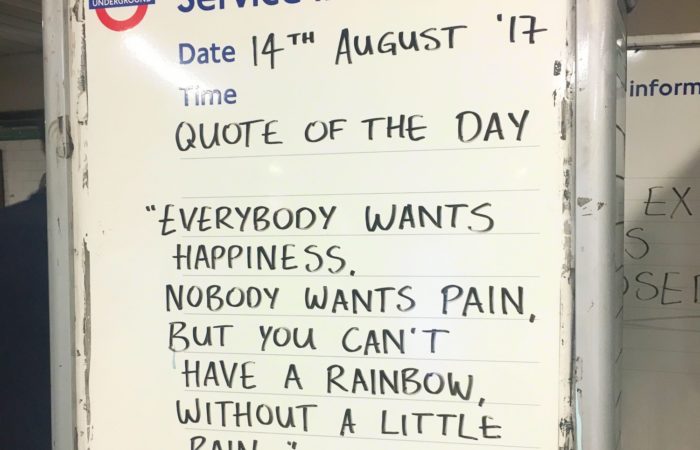 UNDERGROUND
Service
Date 14TH AUGUST '17
Time
QUOTE OF THE DAY
"EVERYBODY WANTS
HAPPINESS.
NOBODY WANTS PAIN,
BUT YOU CAN'T
HAVE A RAINBOW,
WITHOUT A LITTLE
RAIN."
inform
EX
S
OSED